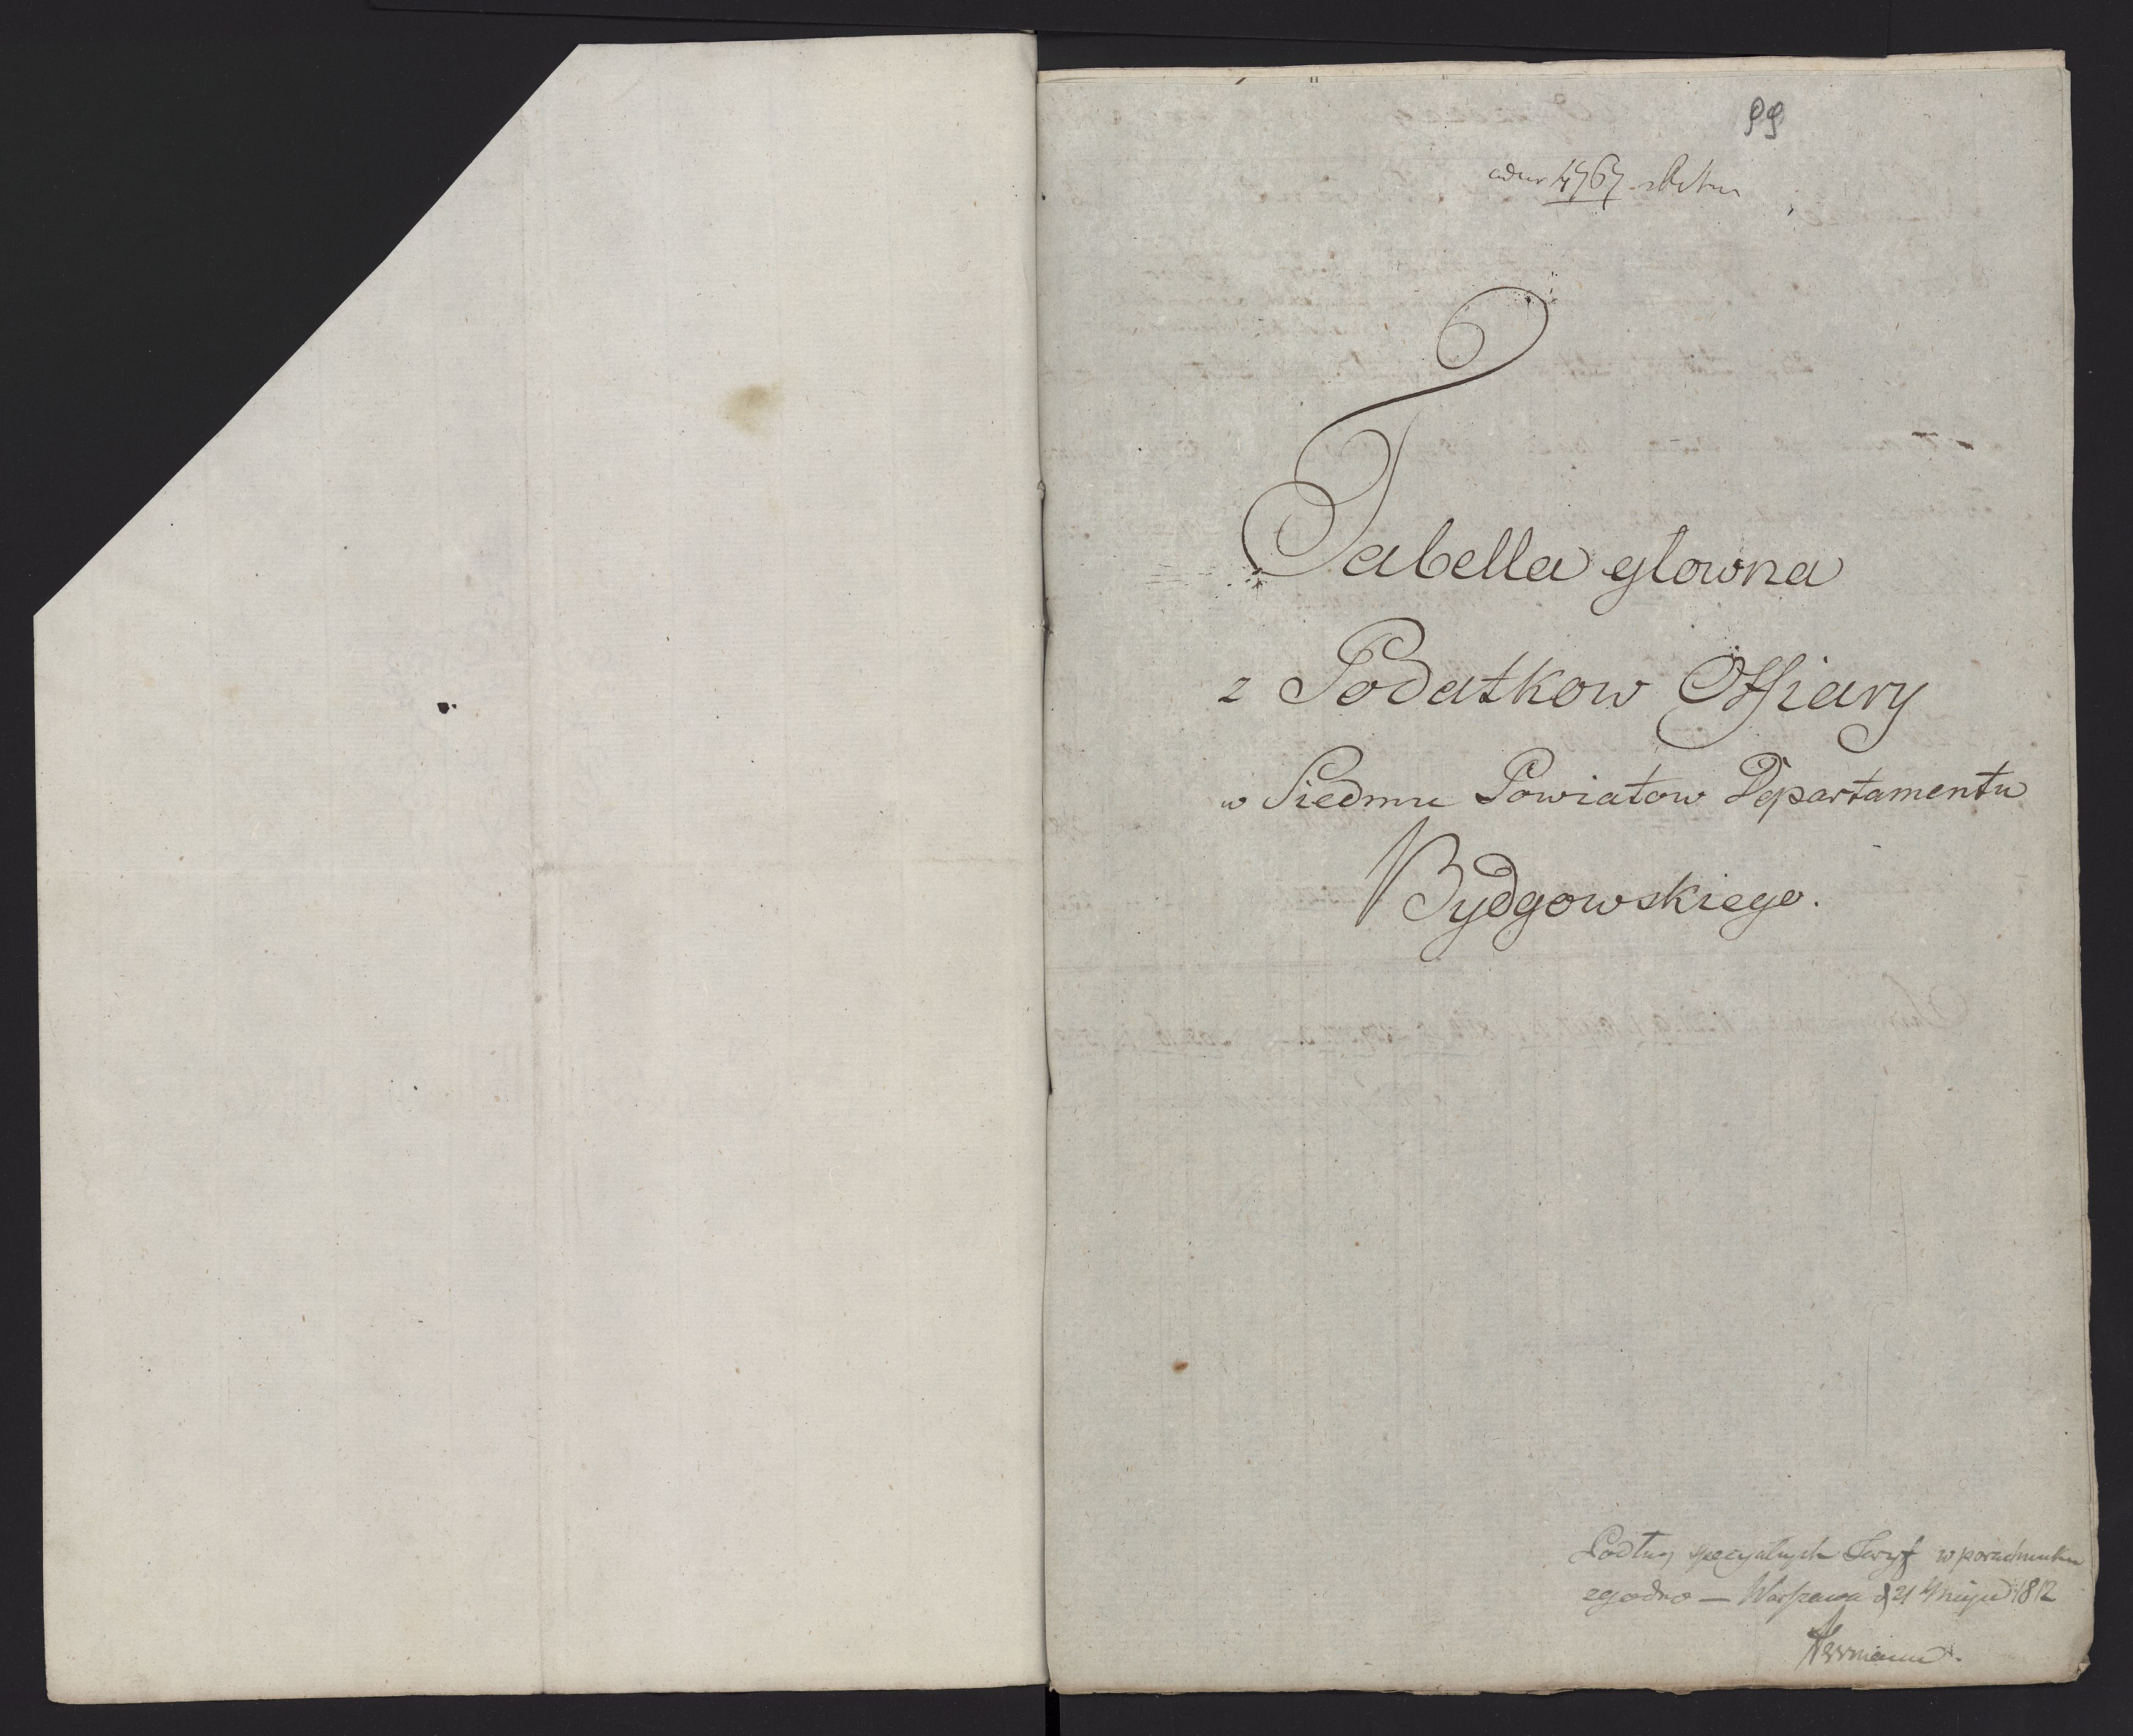 99
ad nr 4767
Tabella głowna
z Podatkow Offiary
w Siedmu Powiatow Departamentu
Bydgowskiego.
Podług specyalnych Taryf w porachunku
zgodno — Warszawa d 21 Maja 1812
Hermann.